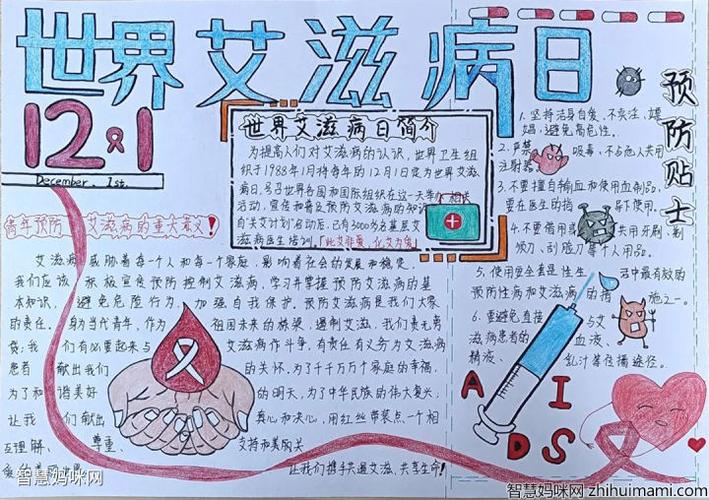 世界艾滋病日
12.1
December. 1st.
世界艾滋病日简介
为提高人们对艾滋病的认识，世界卫生组
织于1988年1月将每年的12月1日定为世界艾滋
病日，号召世界各国和国际组织在这一天举办相关
活动，宣传和普及预防艾滋病的知识
自"关艾计划"启动后，已有3000为名基层艾
滋病医生培训。「此艾非爱，化艾为爱」
预防贴士
1.坚持洁身自爱，不卖注、嫖
娼，避免高危性。
2.严禁吸毒，不与他人共用
注射器。
3.不要擅自输血和使用血制品，
要在医生的指导下使用。
4.不要借用或共用牙刷、剃
须刀、刮脸刀等个人用品。
5.使用安全套是性生活中最有效的
预防性病和艾滋病的措施之一。
6.要避免直接与艾
滋病患者的血液、
精液、乳汁等径播途径。
AIDS
青年预防艾滋病的重大意义！
艾滋病威胁着每一个人和每一个家庭，影响着社会的发展和稳定，
我们应该积极宣传预防控制艾滋病，学习并掌握预防艾滋病的基
本知识，避免危险行为，加强自我保护，预防艾滋病是我们大家
的责任。身为当代青年，作为祖国未来的栋梁，遏制艾滋，我们责无旁
贷；我们有必要起来与艾滋病作斗争，有责任有义务为艾滋病
患者献出我们的关怀。为了千千万万个家庭的幸福，
为了和谐美好的明天，为了中华民族的伟大复兴；
让我们献出真心和决心，用红丝带装点一个相
互理解、尊重、支持和美的关
让我们携手共遏艾滋、共享生命！
智慧妈咪网
智慧妈咪网 zhihuimami.com